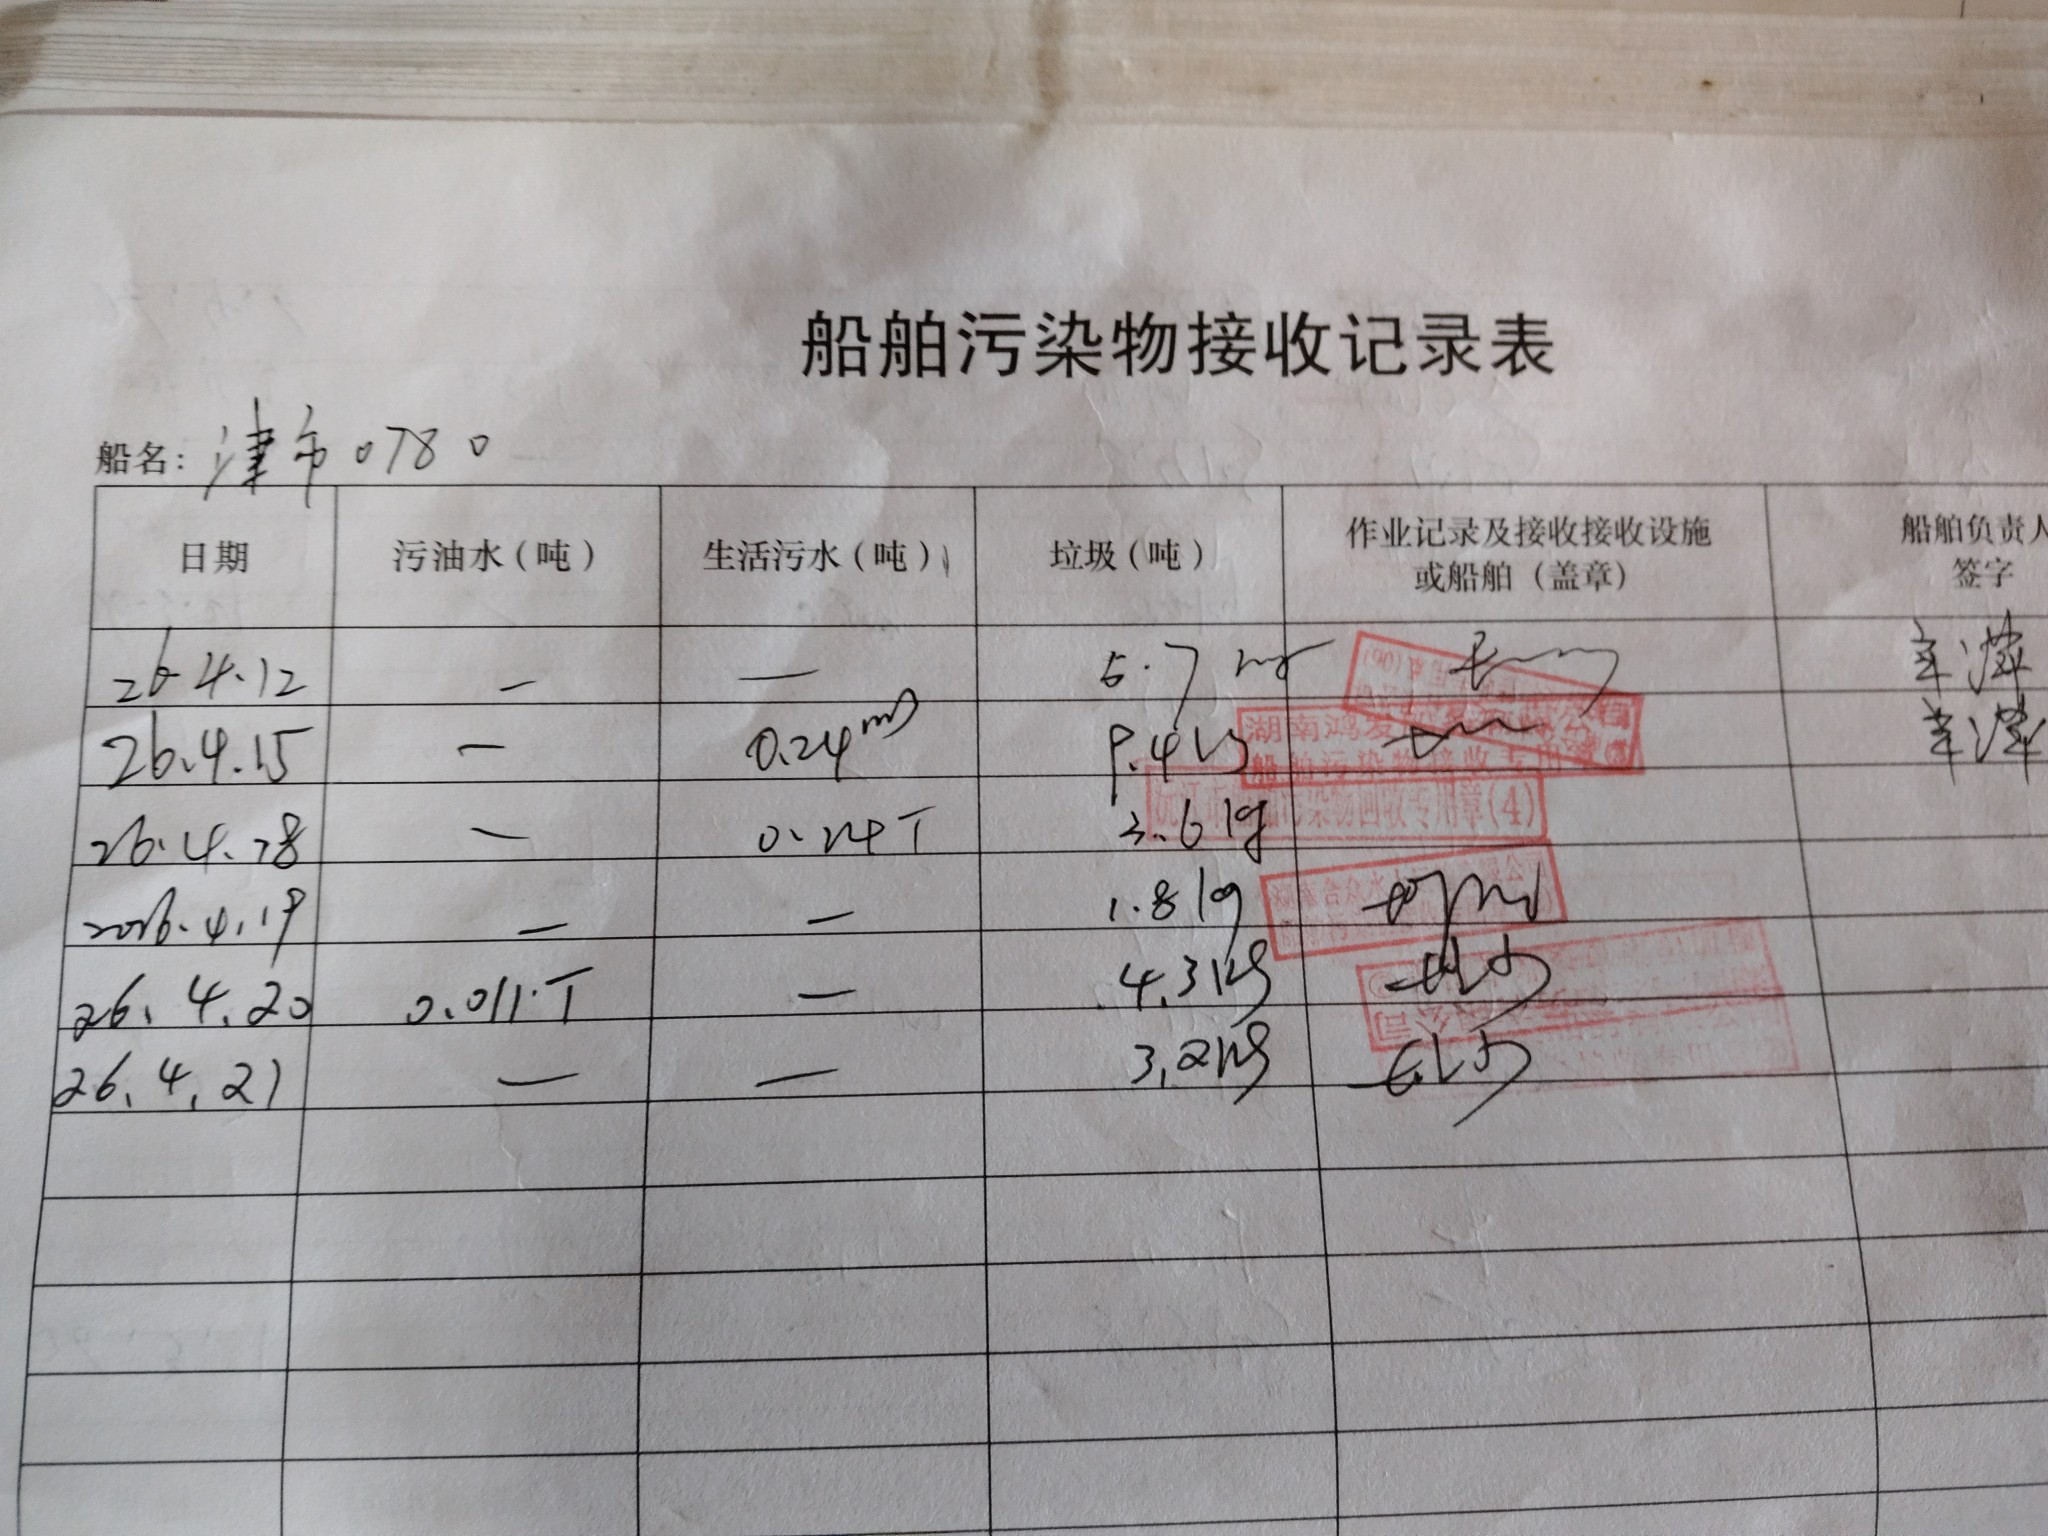 船舶污染物接收记录表
船名: 津市0780
日期 污油水（吨） 生活污水（吨） 垃圾（吨） 作业记录及接收接收设施或船舶（盖章） 船舶负责人签字
26.4.12 — — 5.7 kg
26.4.15 — 0.24m³ 9.4kg 湖南鸿发 船舶污染物接收专用
26.4.18 — 0.24T 3.6kg 沅江市船舶污染物回收专用章(4)
2026.4.19 — — 1.8kg
26.4.20 0.011.T — 4.3kg
26.4.21 — — 3.2kg